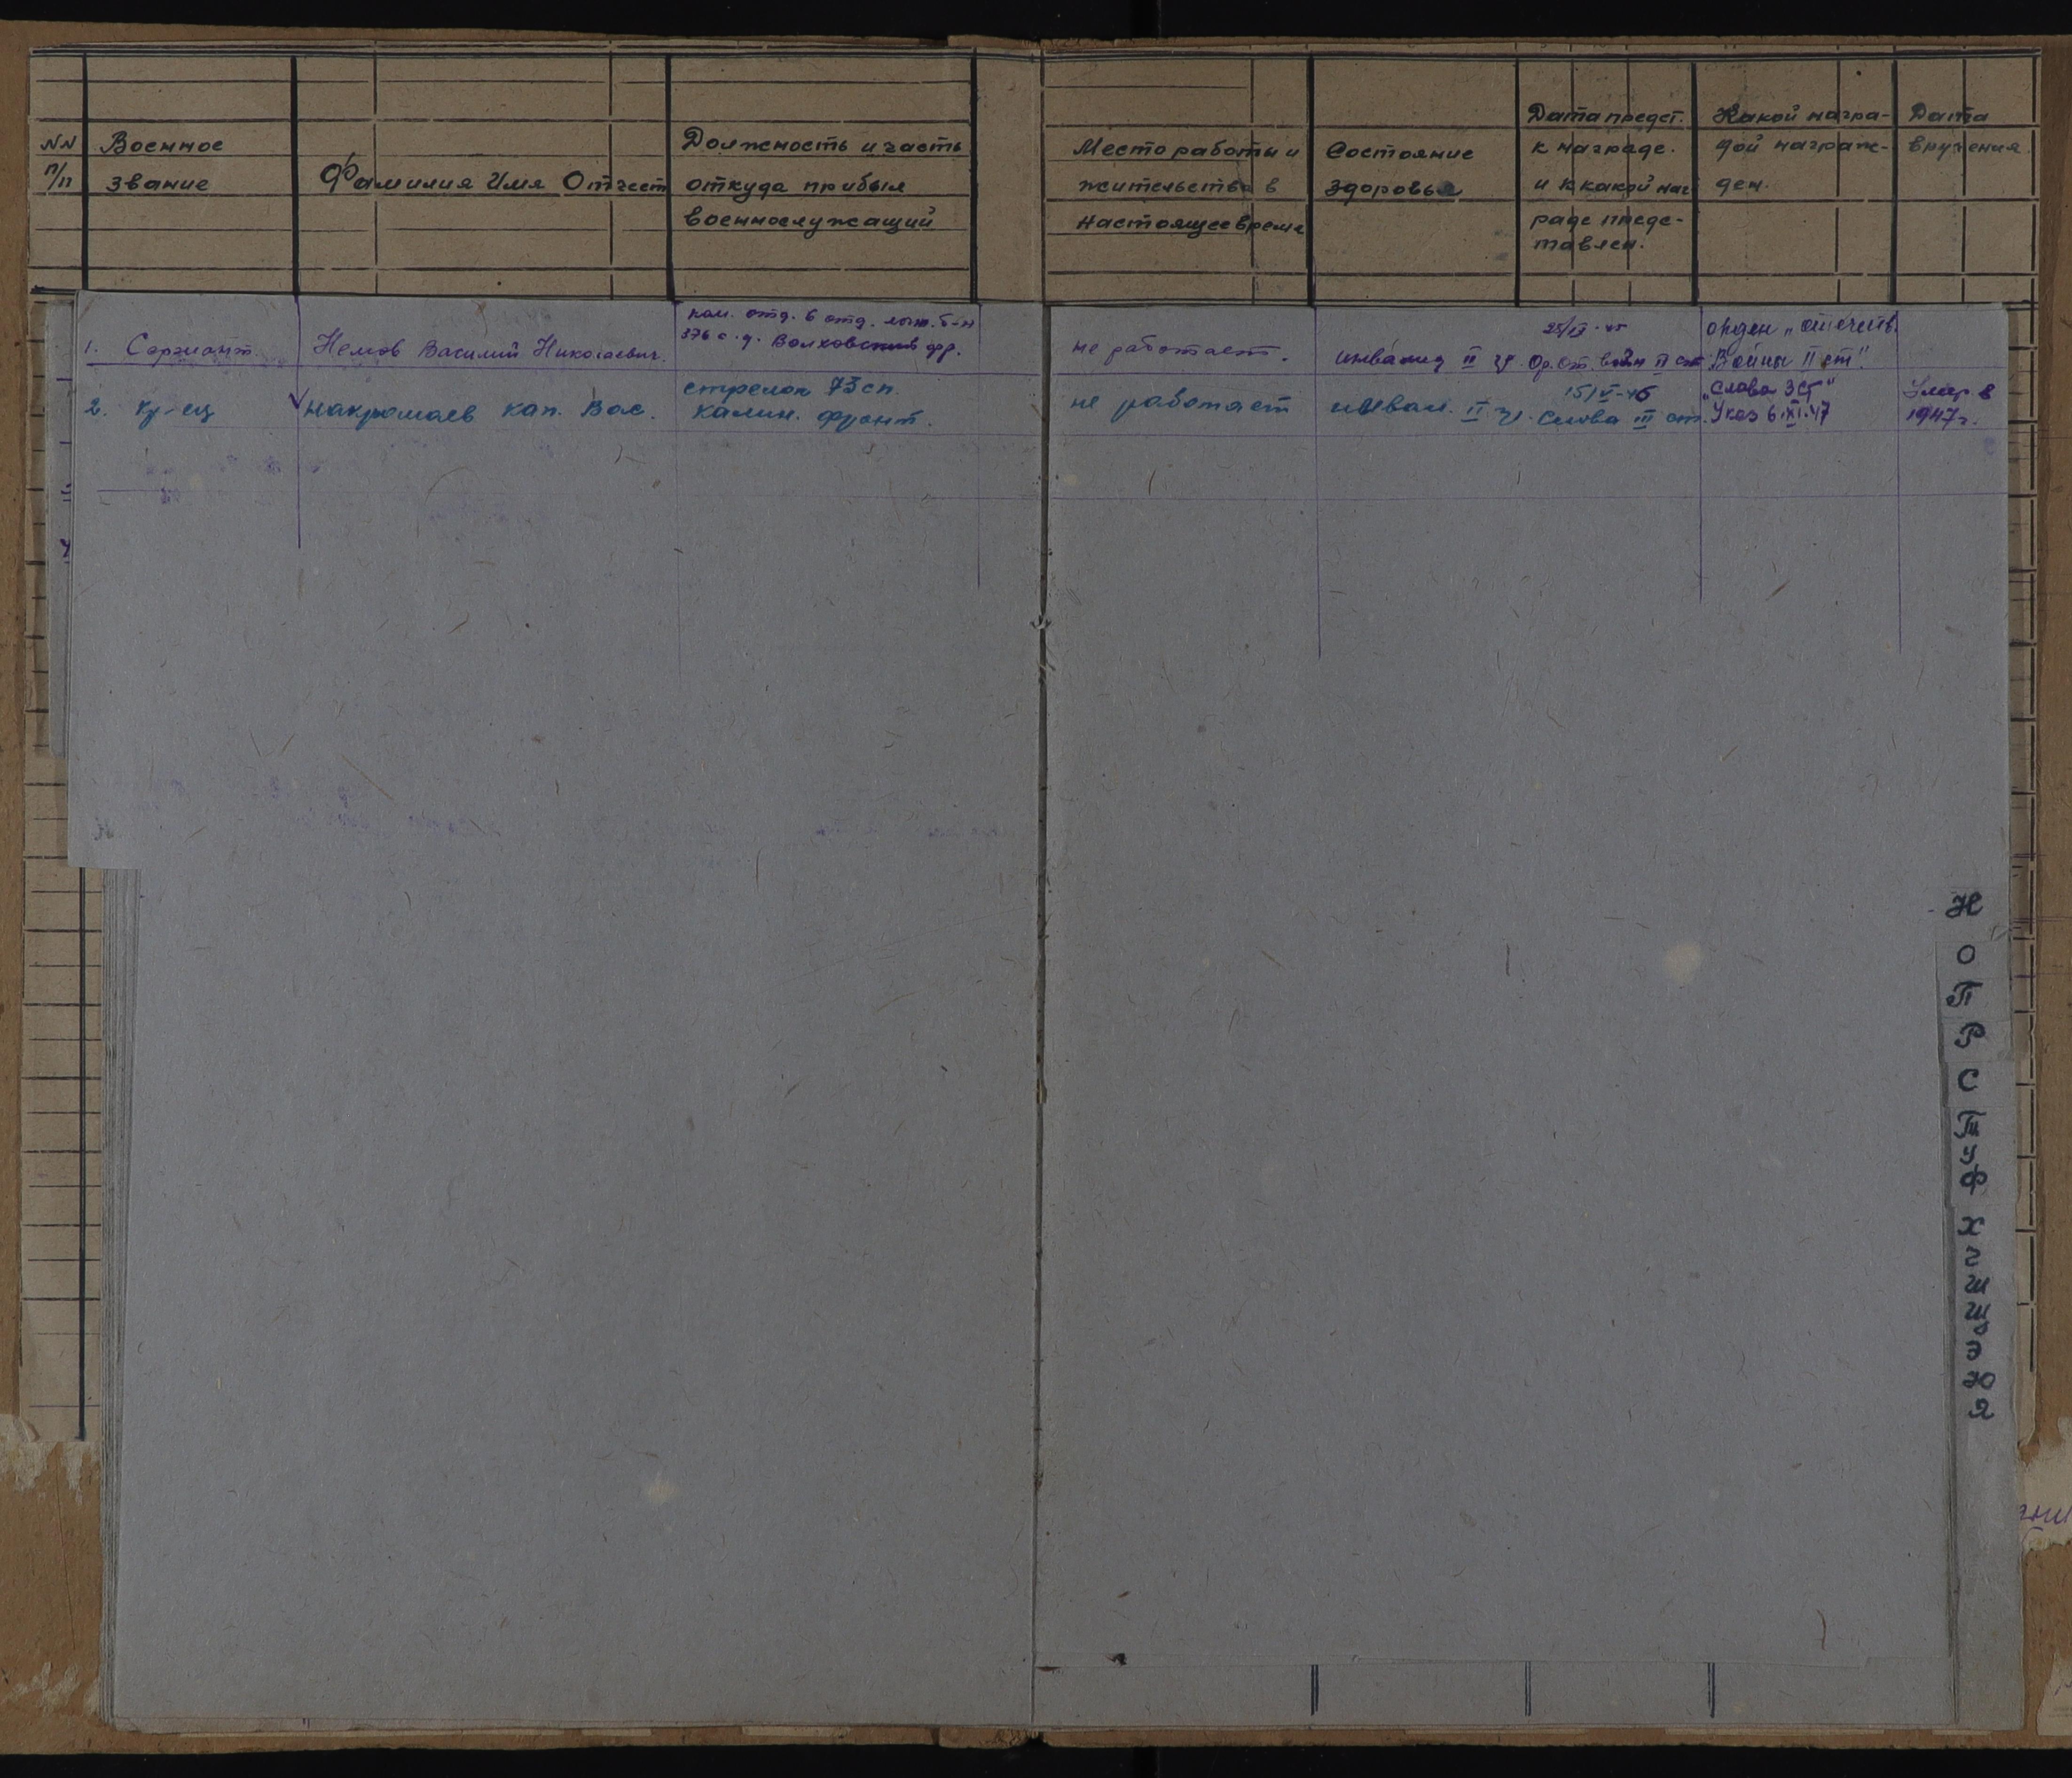 NN п/п
Военное звание
Фамилия Имя Отчест
Должность и часть
откуда прибыл
военнослужащий
Место работы и
жительства в
настоящее время
Состояние
здоровья
Дата предст.
к награде.
и к какой наг
раде предс-
тавлен.
Какой награ-
дой награж-
ден.
Дата
вручения.
1. Сержант. Немов Василий Николаевич.
ком. отд. 6 отд. лыж. б-н
376 с.д. Волховский фр.
не работает. инвалид II гр.
25/IV-45
Ор. от. войн II ст
орден „отечеств.
Войны II ст".
2. кр-ец накромаев кап. Вас.
стрелок 73 сп.
Калин. фронт.
не работает инвал. II гр.
15/V-46
Слова III ст.
„Слава 3 ст"
Указ 6.XI.47
Умер в
1947г.
Н
О
П
Р
С
Т
У
Ф
Х
Ч
Ш
Щ
Э
Ю
Я